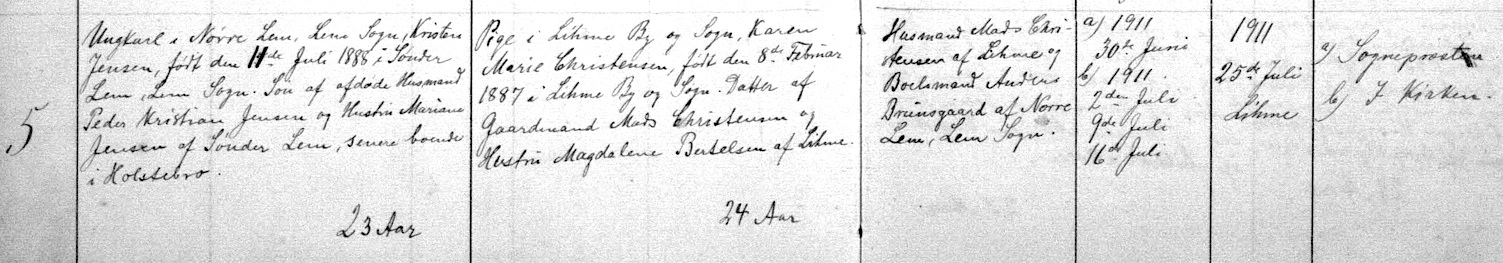 5
Ungkarl i Nørre Lem, Lem Sogn, Kristen
Jensen, født den 11de Juli 1888 i Sønder
Lem, Lem Sogn. Søn af afdøde Husmand
Peder Kristian Jensen og Hustru Mariane
Jensen af Sønder Lem, senere boende
i Holstebro.
23 Aar
Pige i Lihme By og Sogn, Karen
Marie Christensen, født den 8de Februar
1887 i Lihme By og Sogn. Datter af
Gaardmand Mads Christensen og
Hustru Magdalene Bertelsen af Lihme.
24 Aar
Husmand Mads Chri-
stensen af Lihme og
Boelsmand Anders
Brunsgaard af Nørre
Lem, Lem Sogn.
a) 1911
30te Juni
b) 1911.
2den Juli
9de Juli
16de Juli
1911
25de Juli
Lihme
a) Sognepræsten
b) I Kirken.